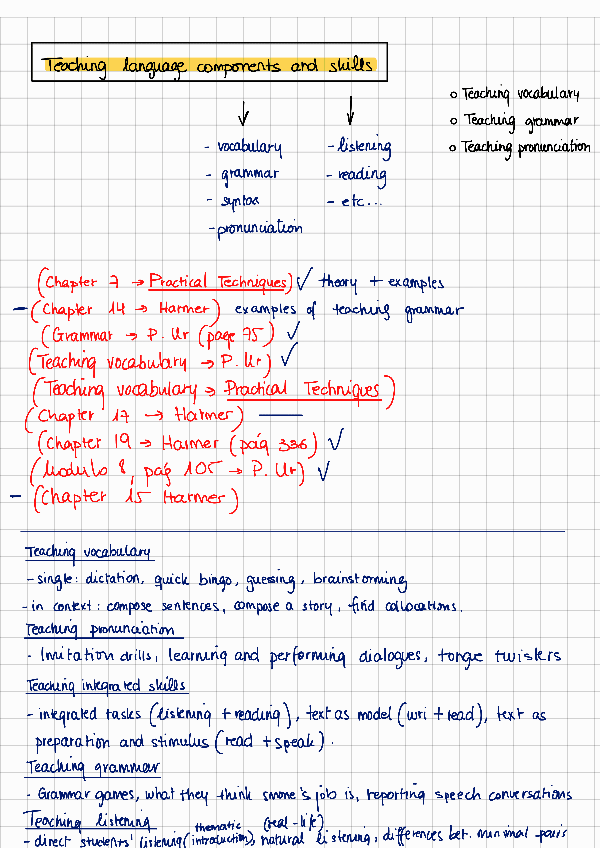 Teaching language components and skills
o Teaching vocabulary
o Teaching grammar
o Teaching pronunciation
- vocabulary - listening
- grammar - reading
- syntax - etc...
- pronunciation
(Chapter 7 → Practical Techniques) ✓ theory + examples
- (Chapter 14 → Harmer) examples of teaching grammar
(Grammar → P. Ur (page 75) ✓
(Teaching vocabulary → P. Ur) ✓
(Teaching vocabulary → Practical Techniques)
(Chapter 17 → Harmer) —
(Chapter 19 → Harmer (pág 336) ✓
(Modulo 8, pág 105 → P. Ur) ✓
- (Chapter 15 Harmer)
Teaching vocabulary
- single: dictation, quick bingo, guessing, brainstorming
- in context: compose sentences, compose a story, find collocations.
Teaching pronunciation
- Imitation drills, learning and performing dialogues, tongue twisters
Teaching integrated skills
- integrated tasks (listening + reading), text as model (wri + read), text as
preparation and stimulus (read + speak).
Teaching grammar
- Grammar games, what they think smone's job is, reporting speech conversations
Teaching listening
- direct students' listening (thematic introduction), natural (real-life) listening, differences bet. minimal-pairs